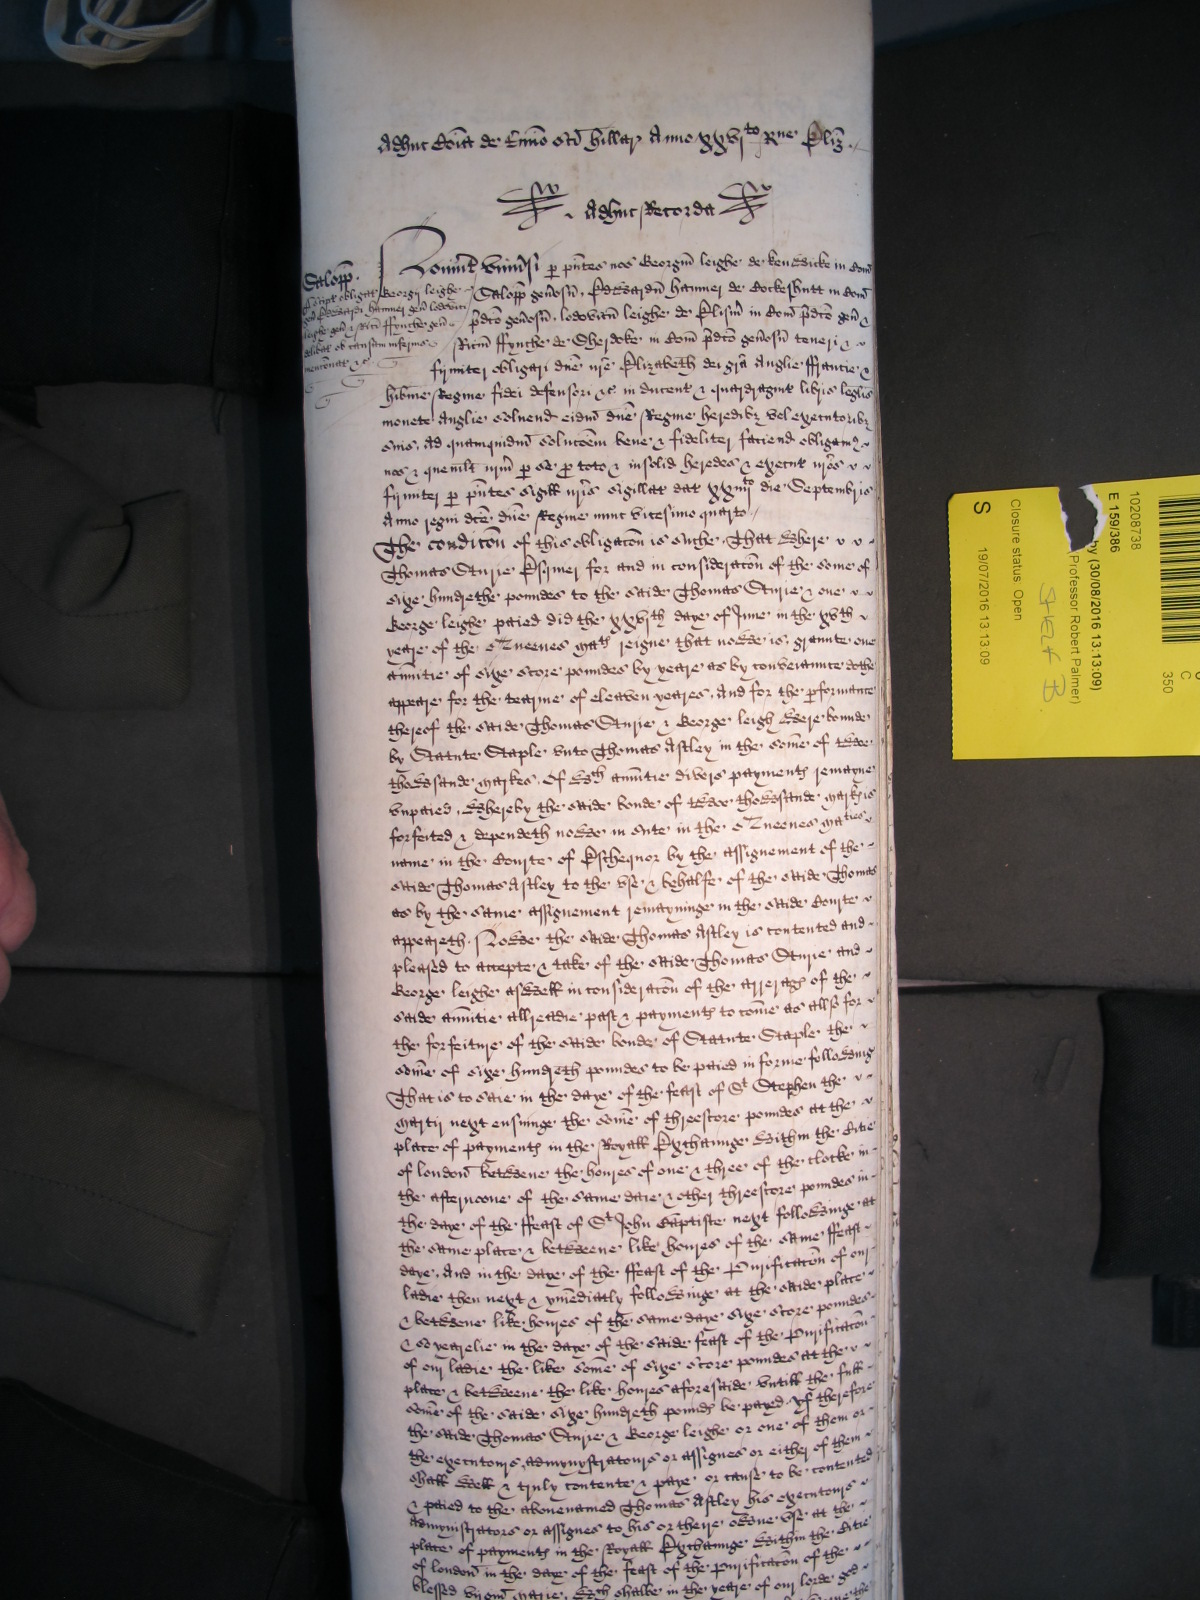 Adhuc Co͠ia de t'mi͠o s͠ci Hillar Anno xxvjto Rne Eliz.
Adhuc Recorda
Salopp.
Script obligat Georgij leighe
gen Edwardi hanmer gen lodovici
leighe gen & Rici ffynche gen
delibat ob causam inferius
menconat &c
Noverint univ'si p p'ntes nos Georgiu' leighe de
Salopp gen'osu', Edwardu' hanmer de in Com
p'dco gen'osu', lodovicu' leighe de in Com p'dco gen &
Ricu' ffynche de in Com p'dco gen'osu' teneri &
firmiter obligari d'ne n're Elizabeth dei gra Anglie ffrancie &
hib'nie Regine fidei defensori &c in ducent & quadragint libris leglis
monete Anglie solvend eidm d'ne Regine heredibz vel executoribz
suis, Ad quamquidm soluco'em bene & fideliter faciend obligam'
nos & quemlt n'rm p se p toto & insolid heredes & execut n'ros
firmiter p p'ntes sigill n'ris sigillat dat die Septembris
Anno regni dce d'ne Regine nunc vicesimo quarto
The condicon of this obligacon is suche That where
Thomas Sturie Esquier for and in consideracon of the some of
sixe hundrethe poundes to the saide Thomas Sturie & one
George leighe paied did the xxvith daye of June in the xvth
yeare of the Queenes matis reigne that nowe is, graunte one
annuitie of sixe score poundes by yeare as by conveiaunce dothe
appeare for the tearme of eleaven yeares, And for the p'formance
thereof the saide Thomas Sturie & George leigh were bounde
by Statute Staple unto Thomas Astley in the some of twoe
thowsande markes, Of wch annuitie divers payments remayne
unpaied, whereby the saide bonde of twoe thowsande marks is
forfeited & dependeth nowe in sute in the Queenes maties
name in the Courte of Eschequor by the assignement of the
saide Thomas Astley to the use & behalfe of the saide Thomas
as by the same assignement remayninge in the saide Courte
appeareth. Nowe the saide Thomas Astley is contented and
pleased to accepte & take of the saide Thomas Sturie and
George leighe aswell in consideracon of the arrerags of the
saide annuitie allreadie past & payments to come as allso for
the forfeiture of the saide bonde of Statute Staple the
some of sixe hundreth poundes to be paied in forme followinge
That is to saie in the daye of the feast of St Stephen the
martir next ensuinge the some of threescore poundes at the
place of payments in the Royall Exchainge within the Citie
of london betweene the houres of one & three of the clocke in
the afternoone of the same daie & other threescore poundes in
the daye of the ffeast of St John Baptiste next followinge at
the same place & betweene like houres of the same ffeast
daye, And in the daye of the ffeast of the Purificacon of our
ladie then next & ymediatly followinge at the saide place
& betweene like houres of the same daye sixe score poundes
& so yearelie in the daye of the saide feast of the Purificacon
of our ladie the like some of sixe score poundes at the
place & betweene the like houres aforesaide untill the full
some of the saide sixe hundreth pounds be payed. Yf therefore
the saide Thomas Sturie & George leighe or one of them or
the executours, admynystratours or assignes or either of them
shall well & truly contente & paye or cause to be contented
& paied to the abovenamed Thomas Astley his executours
admynistrators or assignes to his or theire owne use at the
place of payments in the Royall Exchainge within the Citie
of london in the daye of the feast of the purificacon of the
blessed virgin marie, wch shalbe in the yeare of our lorde god
10208738
E 159/386
by (30/08/2016 13:13:09)
Professor Robert Palmer)
SHELF B
Closure status: Open
19/07/2016 13:13:09
S
C
350